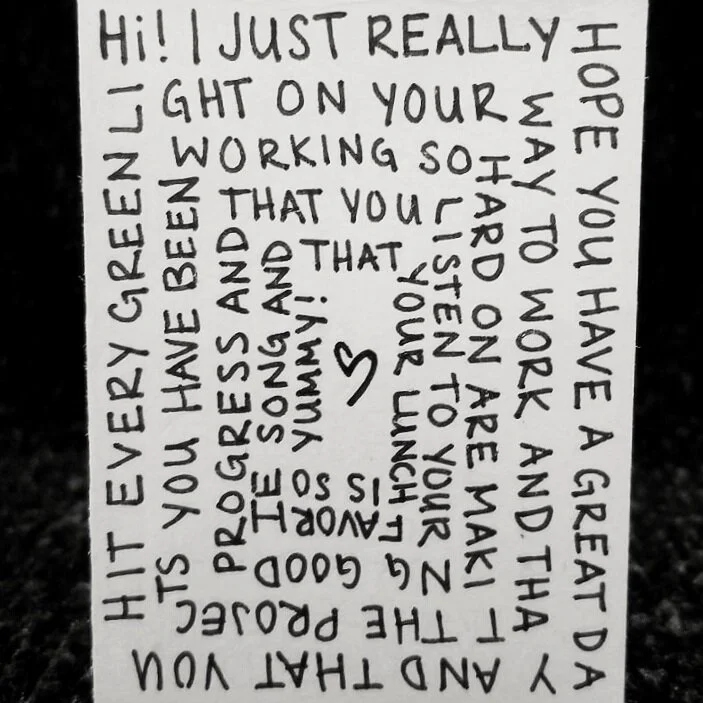 Hi! I JUST REALLY
HOPE YOU HAVE A GREAT DA
Y AND THAT YOU
HIT EVERY GREEN LI
GHT ON YOUR
WAY TO WORK AND THA
T THE PROJEC
TS YOU HAVE BEEN
WORKING SO
HARD ON ARE MAKI
NG GOOD
PROGRESS AND
THAT YOU
LISTEN TO YOUR
FAVORI
TE SONG AND
THAT
YOUR LUNCH
IS SO
YUMMY!